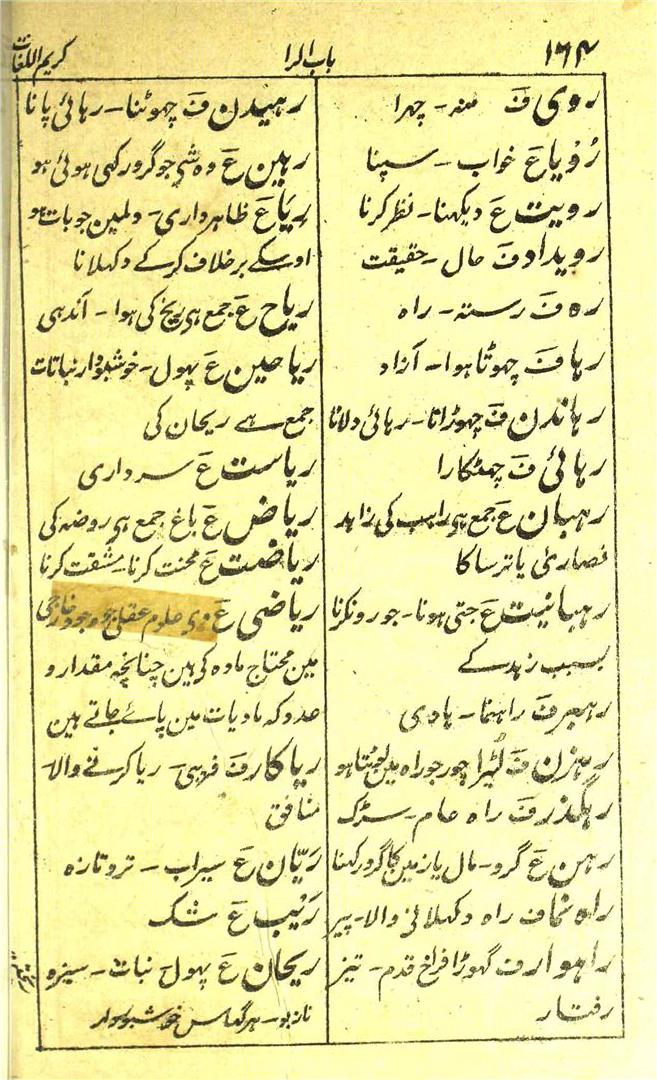 ۱۶۴
باب الرا
کریم اللغات
روی ف منہ۔ چہرا
رُؤیا ع خواب۔ سپنا
رویت ع دیکہنا۔ نظر کرنا
رویداد ف حال۔ حقیقت
رہ ف رستہ۔ راہ
رہا ف چہوٹا ہوا۔ آزاد
رہاندن ف چہوڑانا۔ رہائی دلانا
رہائی ف چھٹکارا
رہبان ع جمع ہی راہب کی زاہد
نصاریٰ یا ترسا کا
رہبانیت ع جتی ہونا۔ جورو نکرنا
بسبب زہد کے
رہبر ف راہنما۔ ہادی
رہزن ف لُٹیرا چور جو راہ مین لوٹتا ہو
رہگذر ف راہ عام۔ سڑک
رہن ع گرو۔ مال یا زمین کا گرو رکہنا
راہ نما ف راہ دکہلانی والا۔ پیر
راہوار ف گہوڑا فراخ قدم۔ تیز
رفتار
رہیدن ف چہوٹنا۔ رہائی پانا
رہین ع وہ شی جو گرو رکہی ہوئی ہو
ریا ع ظاہر داری۔ دلمین جو بات ہو
اوسکے برخلاف کرکے دکہلانا
ریاح ع جمع ہی ریح کی ہوا۔ آندہی
ریاحین ع پہول۔ خوشبودار نباتات
جمع ہے ریحان کی
ریاست ع سرداری
ریاض ع باغ جمع ہی روضہ کی
ریاضت ع محنت کرنا۔ مشقت کرنا
ریاضی ع وہ علوم عقلی جو وجود خارجی
مین محتاج مادہ کی ہین چنانچہ مقدار و
عدد کہ مادیات مین پائے جاتے ہین
ریاکار ف فریبی۔ ریا کرنے والا۔
منافق
ریّان ع سیراب۔ تروتازہ
رَیْب ع شک
ریحان ع پہول نبات۔ سبزہ
نازبو۔ ہر گہاس خوشبودار